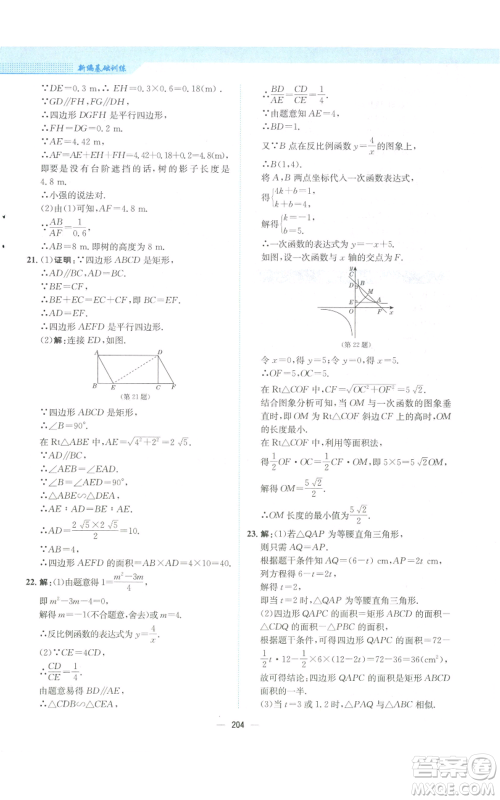 新编基础训练
∵DE=0.3 m,∴EH=0.3×0.6=0.18(m).
∵GD∥FH,∴UG∥DF,
∴四边形 DGFH 是平行四边形,
∴FH=DG=0.2 m.
∵AE=4.42 m,
∴AF=AE+EH+FH=4.42+0.18+0.2=4.8(m).
即要是没有台阶遮挡的话,树的影子长度是 4.8 m.
∴小强的说法对.
(2)由(1)可知,AF=4.8 m.
∵AB/AF=1/0.6,
∴AB=8 m.即树的高度为 8 m.
21. (1)证明:∵四边形 ABCD 是矩形,
∴AD∥BC,AD=BC.
∵BE=CF,
∴BE+EC=EC+CF,即 BC=EF.
∴AD=EF.
∵AD∥EF,
∴四边形 AEFD 是平行四边形.
(2)解:
A D B E C F
(第 21 题)
∵四边形 ABCD 是矩形,
∴∠B=90°.
在 Rt△ABE 中,AE=√(4²+2²)=2√5.
∵AD∥BC,
∴∠AEB=∠EAD.
∵∠B=∠AED=90°,
∴△ABE∽△DEA,
∴AD=(2√5×2√5)/2=10.
∵AB=4,
∴四边形 AEFD 的面积=10×4=40.
22. 解:(1)由题意得 1=(m²-3m)/4,
即 m²-3m-4=0.
解得 m=-1(不符合题意,舍去)或 m=4.
∴反比例函数的表达式为 y=4/x.
(2)∵CE=4CD,
∴CD/CE=1/4.
由题意易得 BD∥AE,
∴△CDB∽△CEA,
∴BD/AE=CD/CE=1/4.
由题意知 AE=4,
∴BD=1.
又∵B 点在反比例函数 y=4/x 的图象上,
∴B(1,4).
将 A,B 两点坐标代入一次函数表达式,
得{4k+b=1, k+b=4.
解得{k=-1, b=5.
∴一次函数的表达式为 y=-x+5.
如图,设一次函数与 x 轴的交点为 F.
(第 22 题)
令 x=0,则 y=5,
令 y=0,则 x=5,
∴OF=OC=5.
在 Rt△COF 中,CF=√(OC²+OF²)=5√2.
结合图象分析可知,当 OM 与一次函数的图象垂直时,即 OM 为 Rt△COF 斜边 CF 上的高时,OM 的长度最小.
在 Rt△COF 中,利用等面积法,
得 1/2 OF·OC=1/2 CF·OM,
即 1/2×5×5=1/2×5√2·OM.
解得 OM=5√2/2,
∴OM 长度的最小值为 5√2/2.
23. 解:(1)若△QAP 为等腰直角三角形,
则只需 AQ=AP.
根据题干条件知 AQ=(6-t) cm,AP=2t cm.
列方程得 6-t=2t,
解得 t=2.
即当 t=2 时,△QAP 为等腰直角三角形.
(2)四边形 QAPC 的面积=矩形 ABCD 的面积-△CDQ 的面积-△PBC 的面积.
根据题干条件,得四边形 QAPC 的面积=72-1/2 t·12-1/2×6×(12-2t)=72-36=36(cm²),
故可得结论:四边形 QAPC 的面积是矩形 ABCD 面积的一半.
(3)当 t=3 时,△PAQ 与△ABC 相似.
204